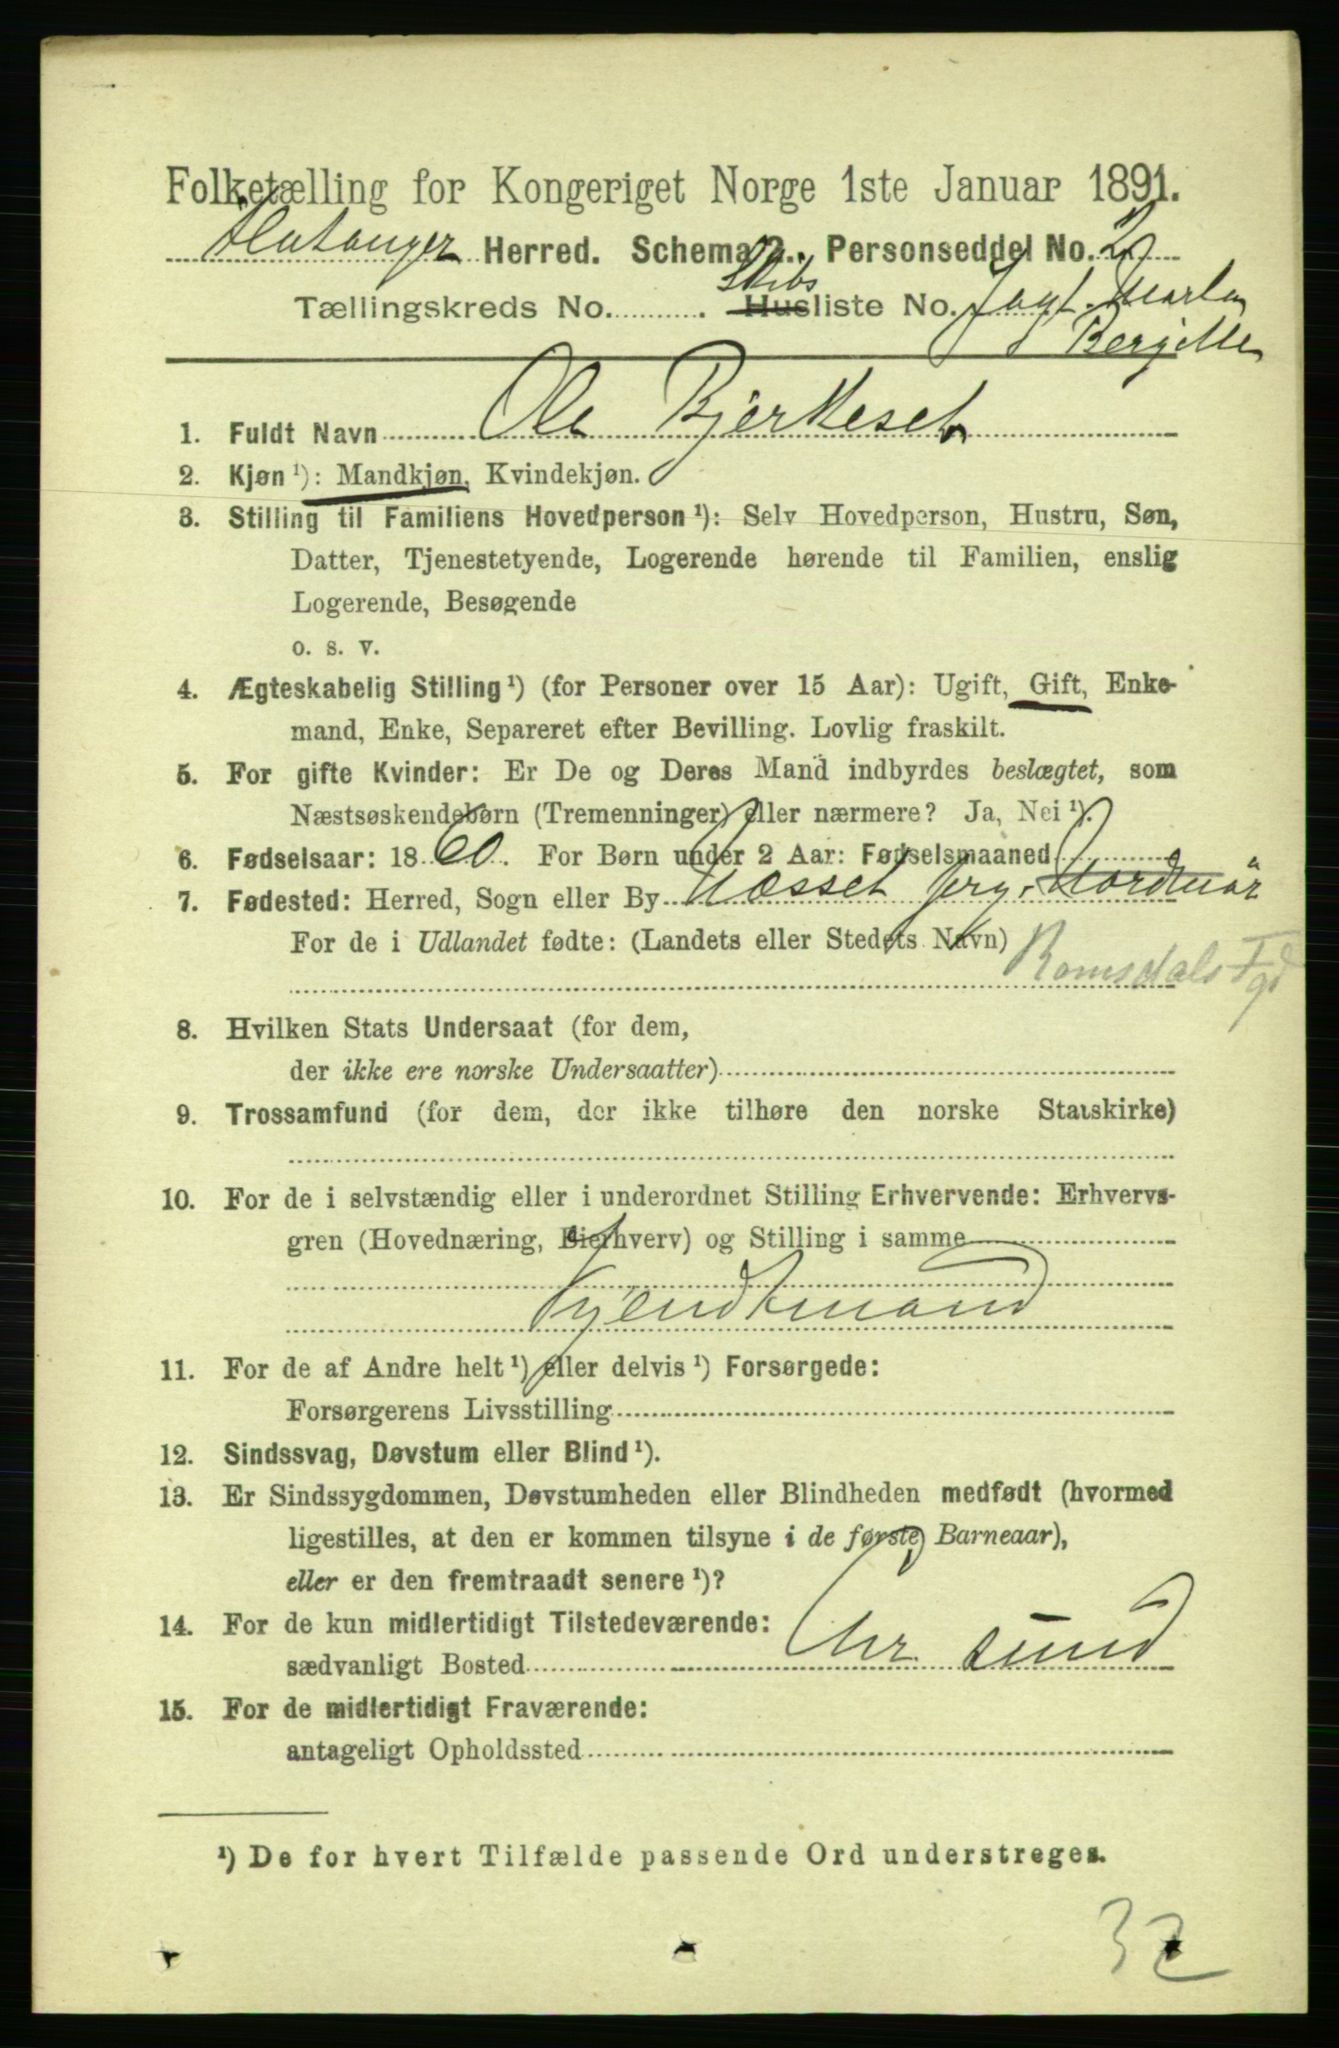 Folketælling for Kongeriget Norge 1ste Januar 1891.
Herred. Schema 2. Personseddel No. 2
Skibs
Tællingskreds No. . Husliste No. Jagt. Marta
Bergitte
1. Fuldt Navn Ole Bjerkeset
2. Kjøn ¹): Mandkjøn, Kvindekjøn.
3. Stilling til Familiens Hovedperson ¹): Selv Hovedperson, Hustru, Søn,
Datter, Tjenestetyende, Logerende hørende til Familien, enslig
Logerende, Besøgende
o. s. v.
4. Ægteskabelig Stilling ¹) (for Personer over 15 Aar): Ugift, Gift, Enke-
mand, Enke, Separeret efter Bevilling. Lovlig fraskilt.
5. For gifte Kvinder: Er De og Deres Mand indbyrdes beslægtet, som
Næstsøskendebørn (Tremenninger) eller nærmere? Ja, Nei ¹).
6. Fødselsaar: 1860. For Børn under 2 Aar: Fødselsmaaned
7. Fødested: Herred, Sogn eller By Næsset Nordmör
For de i Udlandet fødte: (Landets eller Stedets Navn)
Romsdals Fgd
8. Hvilken Stats Undersaat (for dem,
der ikke ere norske Undersaatter)
9. Trossamfund (for dem, der ikke tilhøre den norske Statskirke)
10. For de i selvstændig eller i underordnet Stilling Erhvervende: Erhvervs-
gren (Hovednæring, Bierhverv) og Stilling i samme
Kjendtmand
11. For de af Andre helt ¹) eller delvis ¹) Forsørgede:
Forsørgerens Livsstilling
12. Sindssvag, Døvstum eller Blind ¹).
13. Er Sindssygdommen, Døvstumheden eller Blindheden medfødt (hvormed
ligestilles, at den er kommen tilsyne i de første Barneaar),
eller er den fremtraadt senere ¹)?
14. For de kun midlertidigt Tilstedeværende:
sædvanligt Bosted Chr. sund
15. For de midlertidigt Fraværende:
antageligt Opholdssted
¹) De for hvert Tilfælde passende Ord understreges.
32